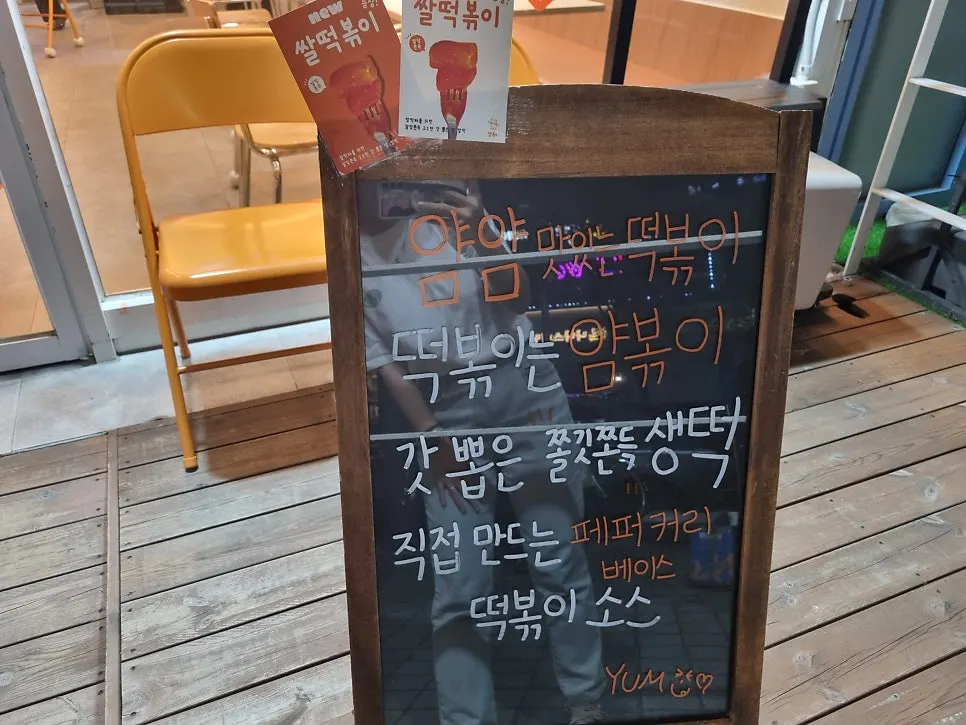 new
쌀떡볶이
쌀떡볶이
얌얌 맛있는 떡볶이
떡볶이는 얌볶이
갓 뽑은 쫄깃쫀득 생떡
직접 만드는 페퍼커리
베이스
떡볶이 소스
YUM